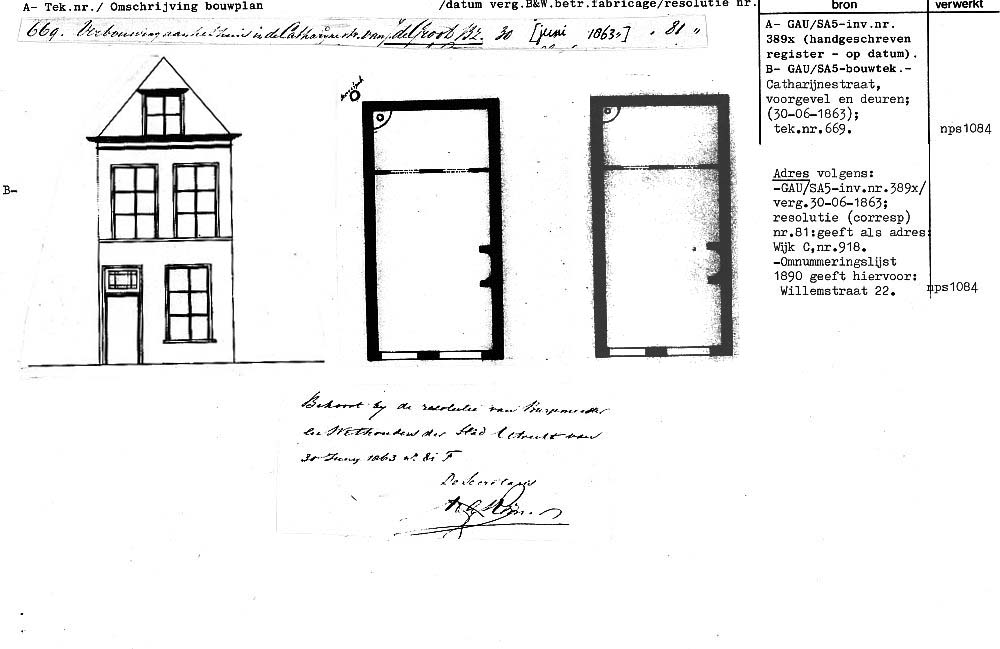 A- Tek.nr./ Omschrijving bouwplan
/datum verg.B&W.betr.fabricage/resolutie nr.
bron
verwerkt
669. Verbouwing aan het huis in de Catharijnestr. van de Groot, Bz. 30 [juni 1863] " 81 "
A- GAU/SA5-inv.nr.
389x (handgeschreven
register - op datum).
B- GAU/SA5-bouwtek.-
Catharijnestraat,
voorgevel en deuren;
(30-06-1863);
tek.nr.669.
nps1084
B-
Adres volgens:
-GAU/SA5-inv.nr.389x/
verg.30-06-1863;
resolutie (corresp)
nr.81:geeft als adres
Wijk C,nr.918.
-Omnummeringslijst
1890 geeft hiervoor:
Willemstraat 22.
nps1084
Behoort bij de resolutie van Burgemeester
en Wethouders der Stad Utrecht van
30 Juny 1863 n. 81 F
De Secretaris